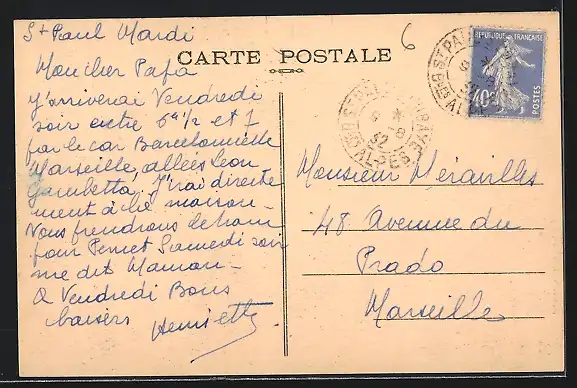 St Paul Mardi
CARTE POSTALE
Mon cher Papa
J'arriverai Vendredi
soir entre 6h ½ et 7
par le car Barcelonnette
Marseille, allées Léon
Gambetta. J'irai directe
ment à la maison -
Nous prendrons le train
pour Pernet Samedi soir
me dit Maman -
A Vendredi Bons
baisers Henriette
6
REPUBLIQUE FRANÇAISE
40c
POSTES
Monsieur Mérailles
48 Avenue du
Prado
Marseille